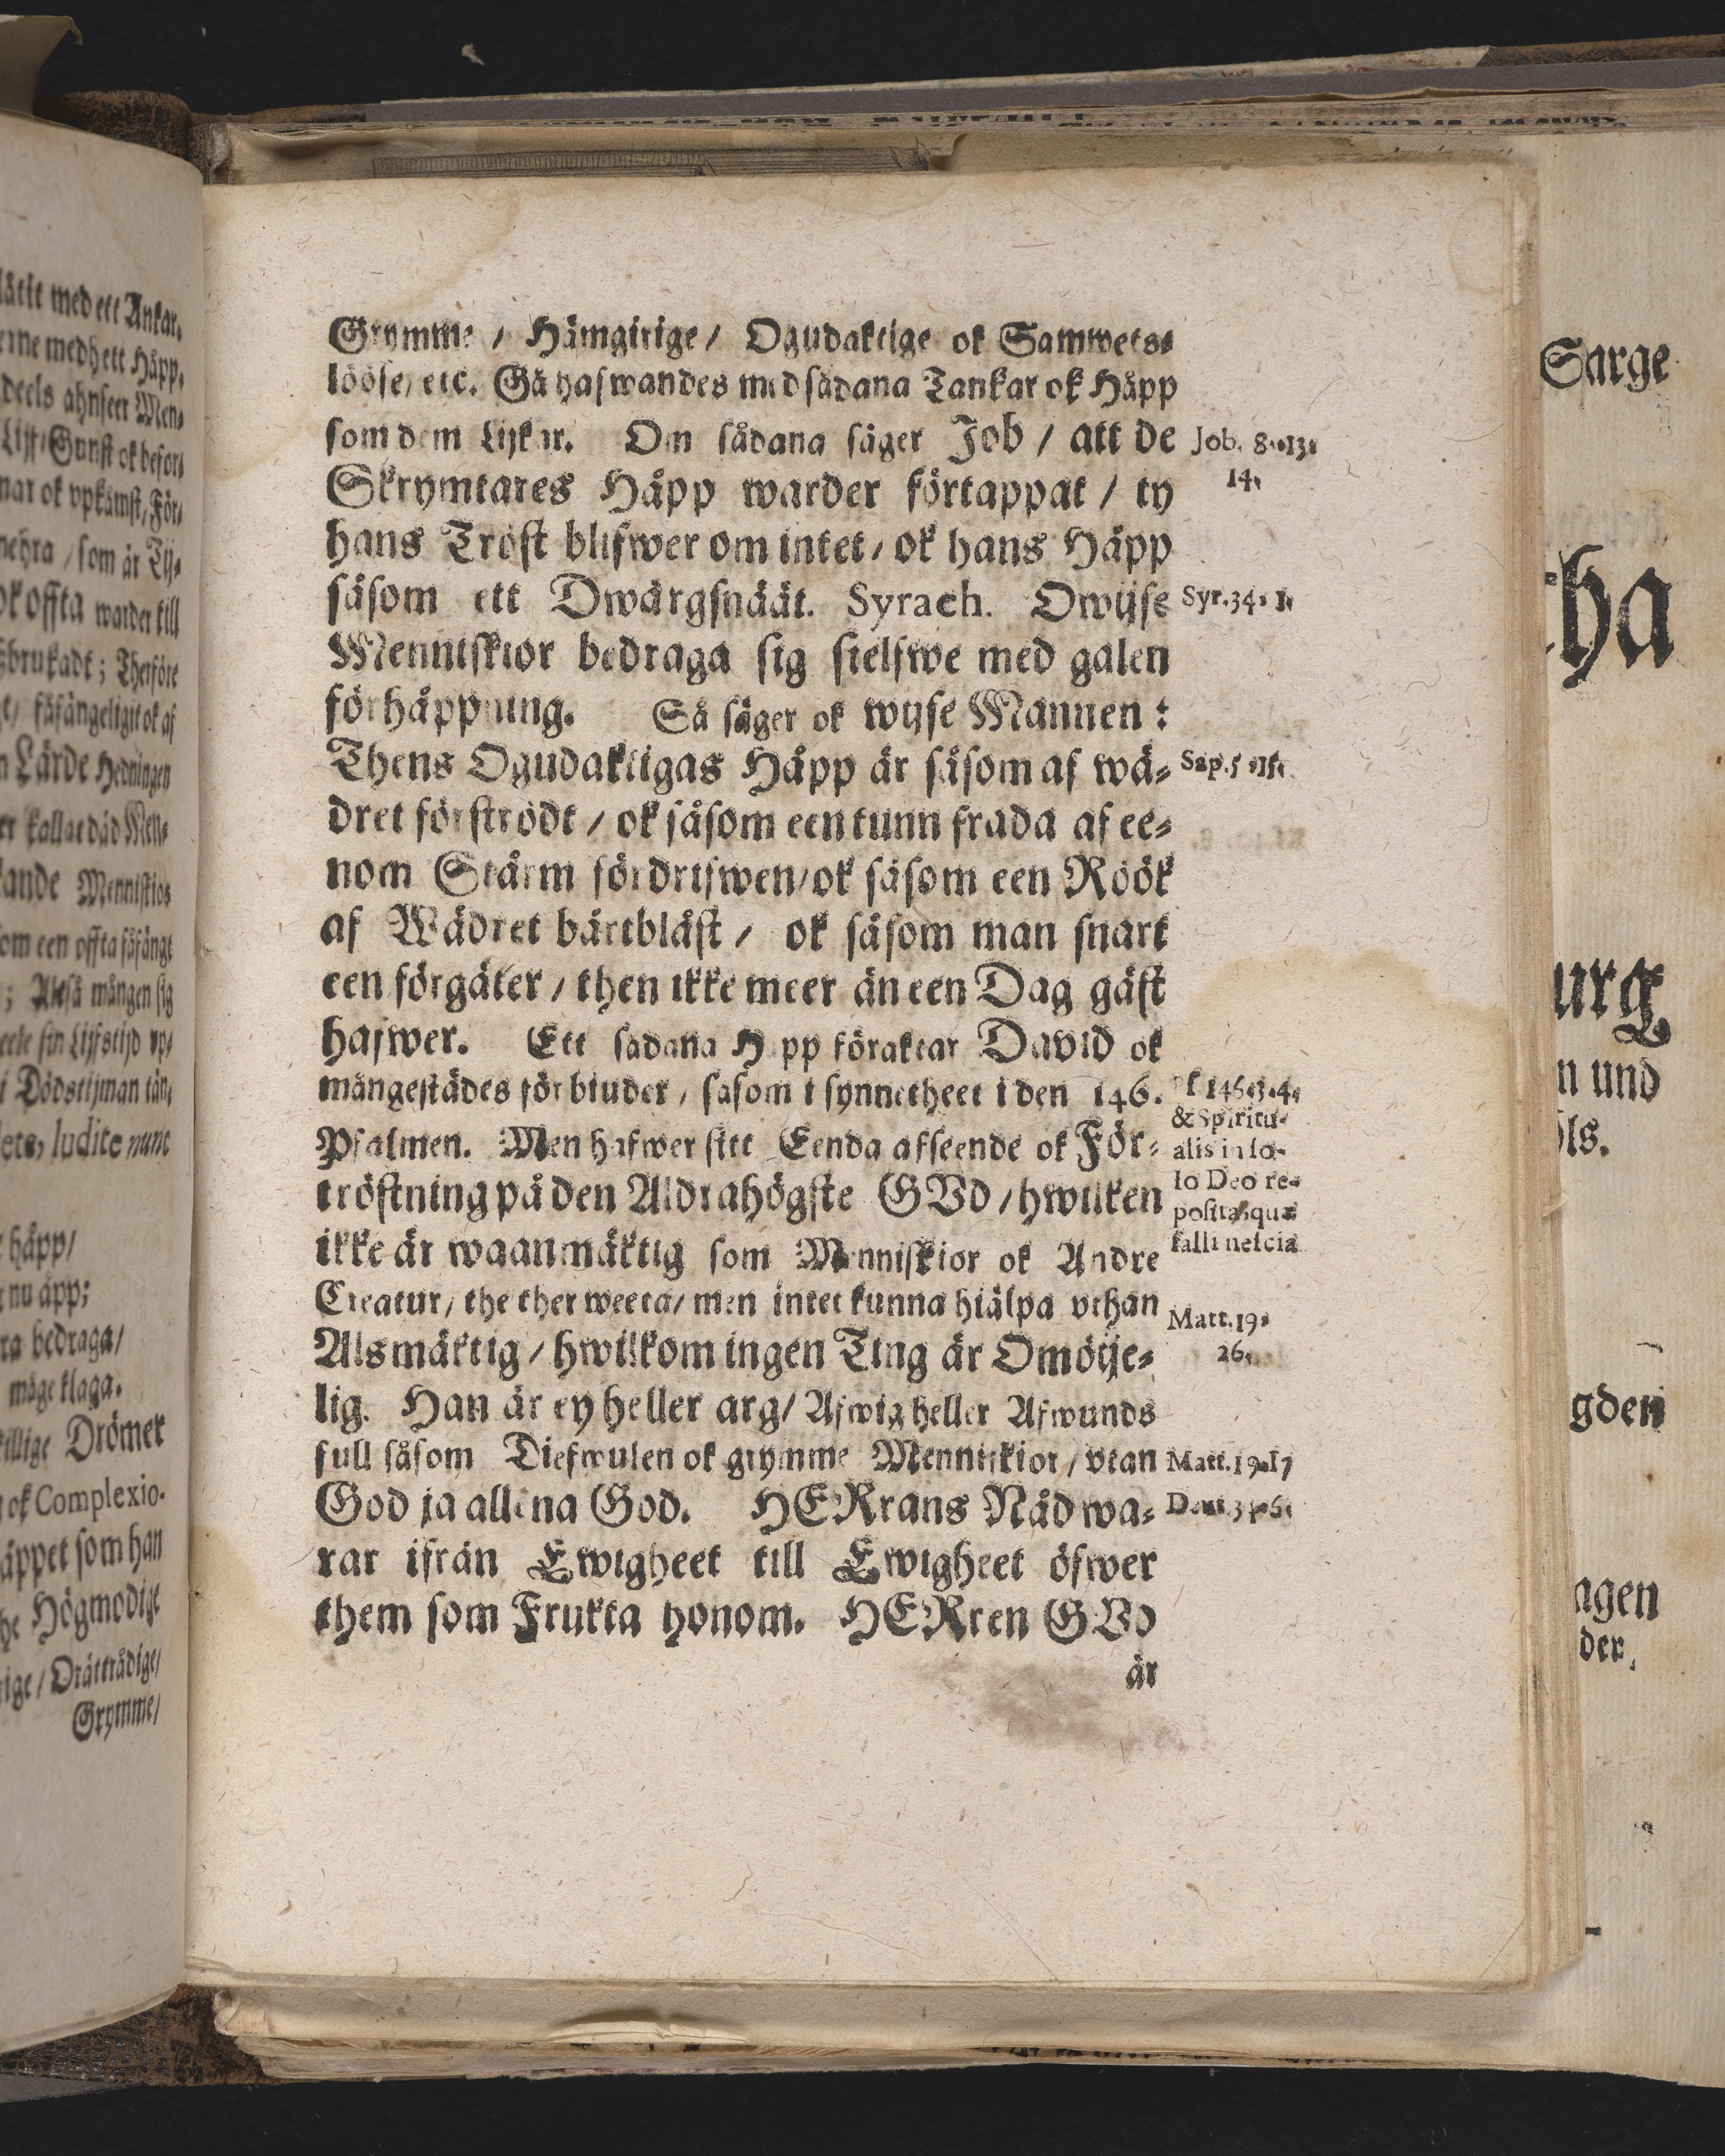 låtit med ett Ankar.
medh ett Håpp,
deels ahnseer Men-
Gunst ok befor-
nar ok vpkåmst, För-
mehra / som är Tij-
ok offta warder till
brukadt ; Therföre
fåfängeligit ok af
Lärde Hedningen
er kallat död Men-
Menniskios
som een offta fåfängt
; Altså mången sig
sin Lijfstijd vp-
i Dödstijman tän-
ludite nunc
håpp/
nu äpp;
ra bedraga/
måge klaga.
Drömer
ok Complexio-
äppet som han
he Högmodige
Orättrådige/
Grymme/
Grymme / Hämgirige / Ogudaktige ok Samwets-
lööse, etc. Gå hafwandes med sådana Tankar ok Håpp
som dem Lijkar. Om sådana säger Job / att de
Skrymtares Håpp warder förtappat / ty
hans Tröst blifwer om intet / ok hans Håpp
såsom ett Dwärgsnäät. Syrach. Owijse
Menniskior bedraga sig sielfwe med galen
förhåppning. Så säger ok wijse Mannen :
Thens Ogudaktigas Håpp är såsom af wä-
dret förströdt / ok såsom een tunn frada af ee-
nom Stårm fördrifwen / ok såsom een Röök
af Wädret bårtblåst / ok såsom man snart
een förgäter / then ikke meer än een Dag gäst
hafwer. Ett sådana Håpp föraktar David ok
mångestädes förbiuder, såsom i synnetheet i den 146.
Psalmen. Men hafwer sitt Eenda afseende ok För-
tröstning på den Aldrahögste GVd / hwilken
ikke är waanmäktig som Menniskior ok Andre
Creatur, the ther weeta / men intet kunna hiälpa vthan
Alsmäktig / hwilkom ingen Ting är Omöije-
lig. Han är ey heller arg / Afwig heller Afwunds
full såsom Diefwulen ok grymme Menniskior / vtan
God ja allena God. HERrans Nåd wa-
rar ifrån Ewigheet till Ewigheet öfwer
them som Frukta honom. HERren GVd
är
Job. 8. 13.
14.
Syr. 34. 1.
Sap. 5. 15.
Ps. 146. 3. 4.
& Spiritu-
alis in so-
lo Deo re-
posita, quæ
falli nescia
Matt. 19.
26.
Matt. 19. 17
Sarge
ha
urg
n und
ls.
gden
agen
der,